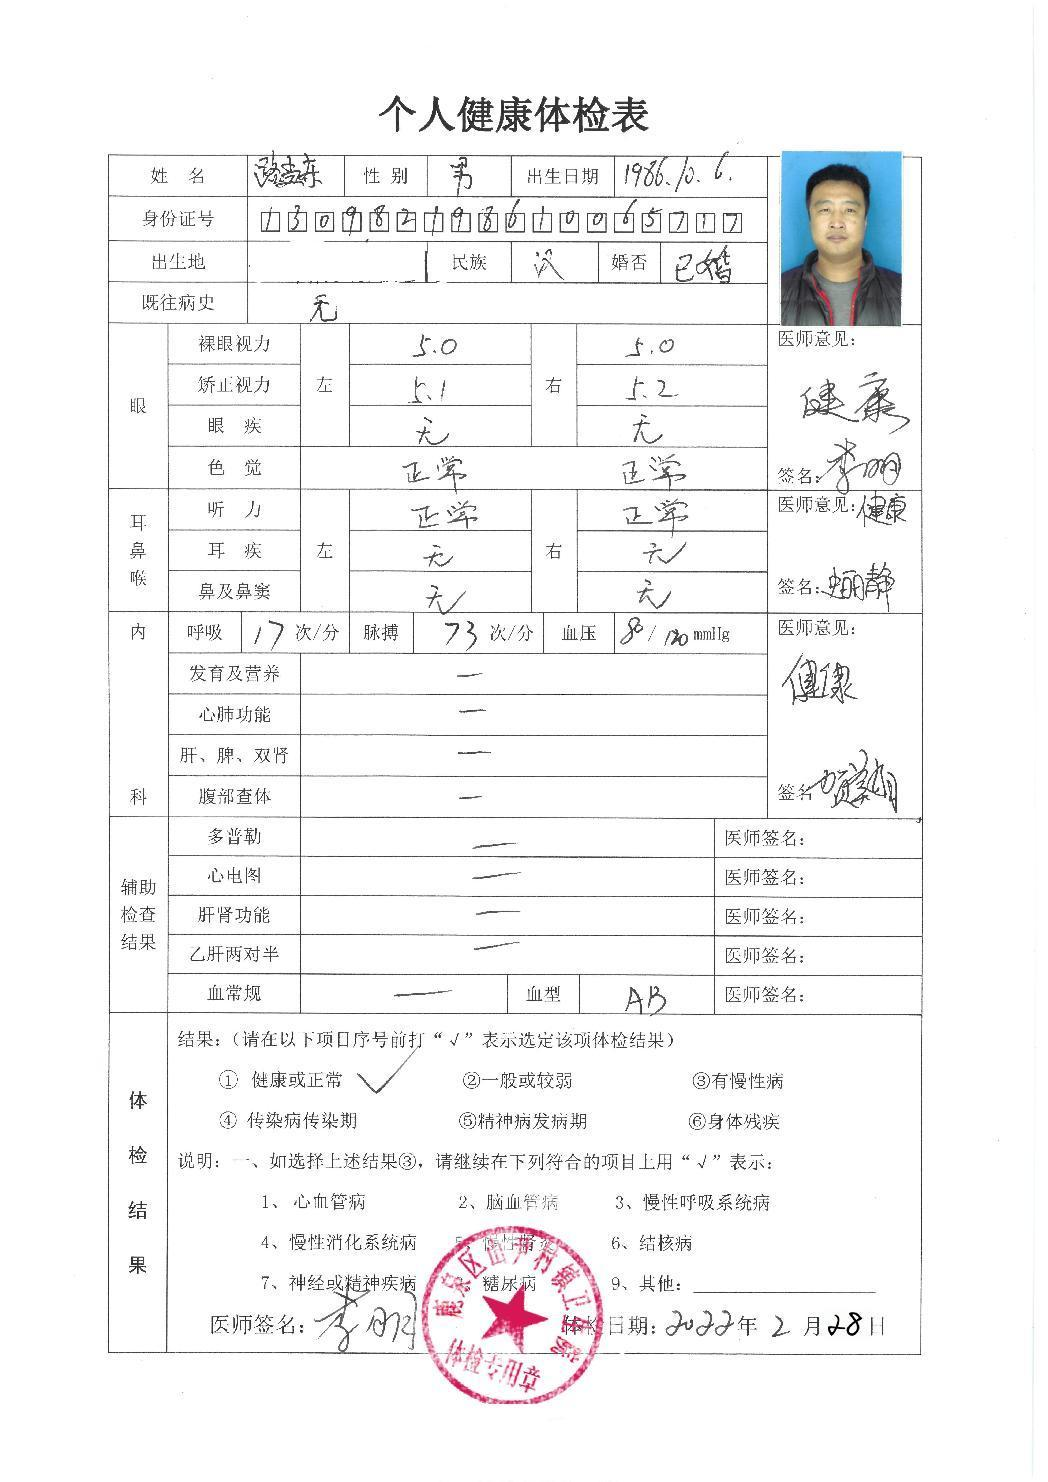 个人健康体检表
姓 名 性 别 男 出生日期 1986.10.6.
身份证号 130982198610065717
出生地 民族 汉 婚否 已婚
既往病史 无
眼 裸眼视力 左 5.0 右 5.0 医师意见：
矫正视力 5.1 5.2 健康
眼 疾 无 无
色 觉 正常 正常 签名：李明
耳鼻喉 听 力 左 正常 右 正常 医师意见：健康
耳 疾 无 无
鼻及鼻窦 无 无 签名：
内科 呼吸 17 次/分 脉搏 73 次/分 血压 80/120 mmHg 医师意见：
发育及营养 — 健康
心肺功能 —
肝、脾、双肾 —
腹部查体 — 签名
辅助检查结果 多普勒 — 医师签名：
心电图 — 医师签名：
肝肾功能 — 医师签名：
乙肝两对半 — 医师签名：
血常规 — 血型 AB 医师签名：
体检结果 结果：（请在以下项目序号前打“√”表示选定该项体检结果）
① 健康或正常 ✓ ②一般或较弱 ③有慢性病
④ 传染病传染期 ⑤精神病发病期 ⑥身体残疾
说明：一、如选择上述结果③，请继续在下列符合的项目上用“√”表示：
1、心血管病 2、脑血管病 3、慢性呼吸系统病
4、慢性消化系统病 5、慢性肾炎 6、结核病
7、神经或精神疾病 糖尿病 9、其他：
医师签名：李明 体检日期：2022年 2 月 28日
体检专用章